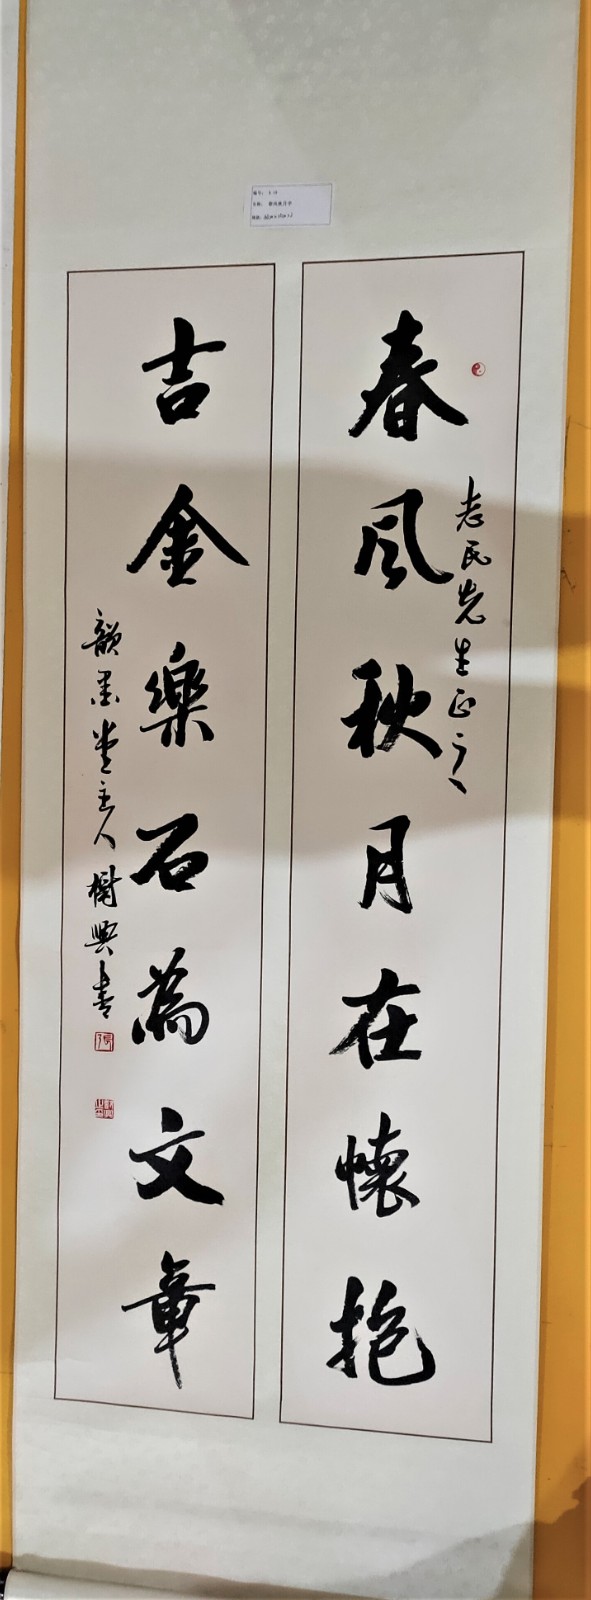 春風秋月在懷抱
志民先生正之
吉金樂石為文章
韻墨堂主人樹興書